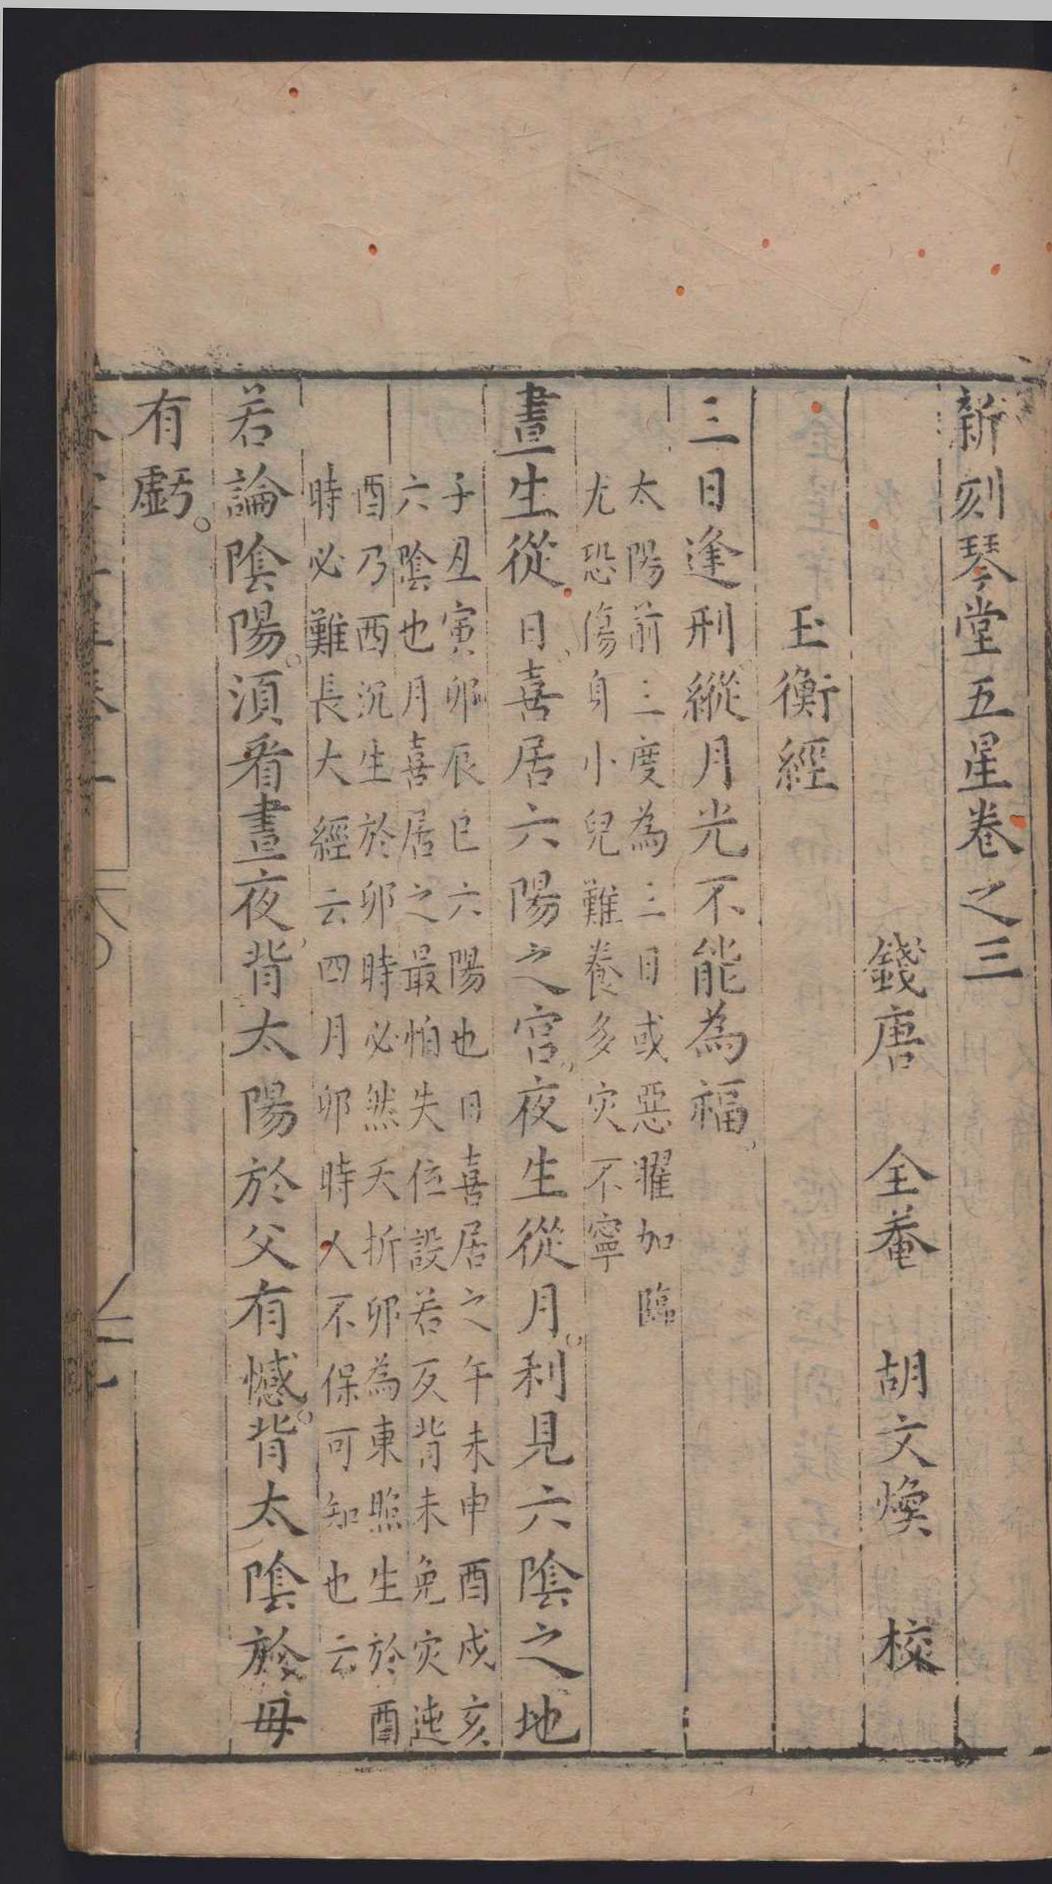 新刻琴堂五星卷之三
錢唐　全菴　胡文煥　校
玉衡經
三日逢刑縱月光不能為福
太陽前三度為三日或惡曜加臨
尤恐傷身小兒難養多灾不寧
晝生從日喜居六陽之宮夜生從月利見六陰之地
子丑寅卯辰巳六陽也日喜居之午未申酉戌亥
六陰也月喜居之最怕失位設若反背未免灾迍
酉乃西沉生於卯時必然夭折卯為東照生於酉
時必難長大經云四月卯時人不保可知也云
若論陰陽須看晝夜背太陽於父有憾背太陰於母
有虧